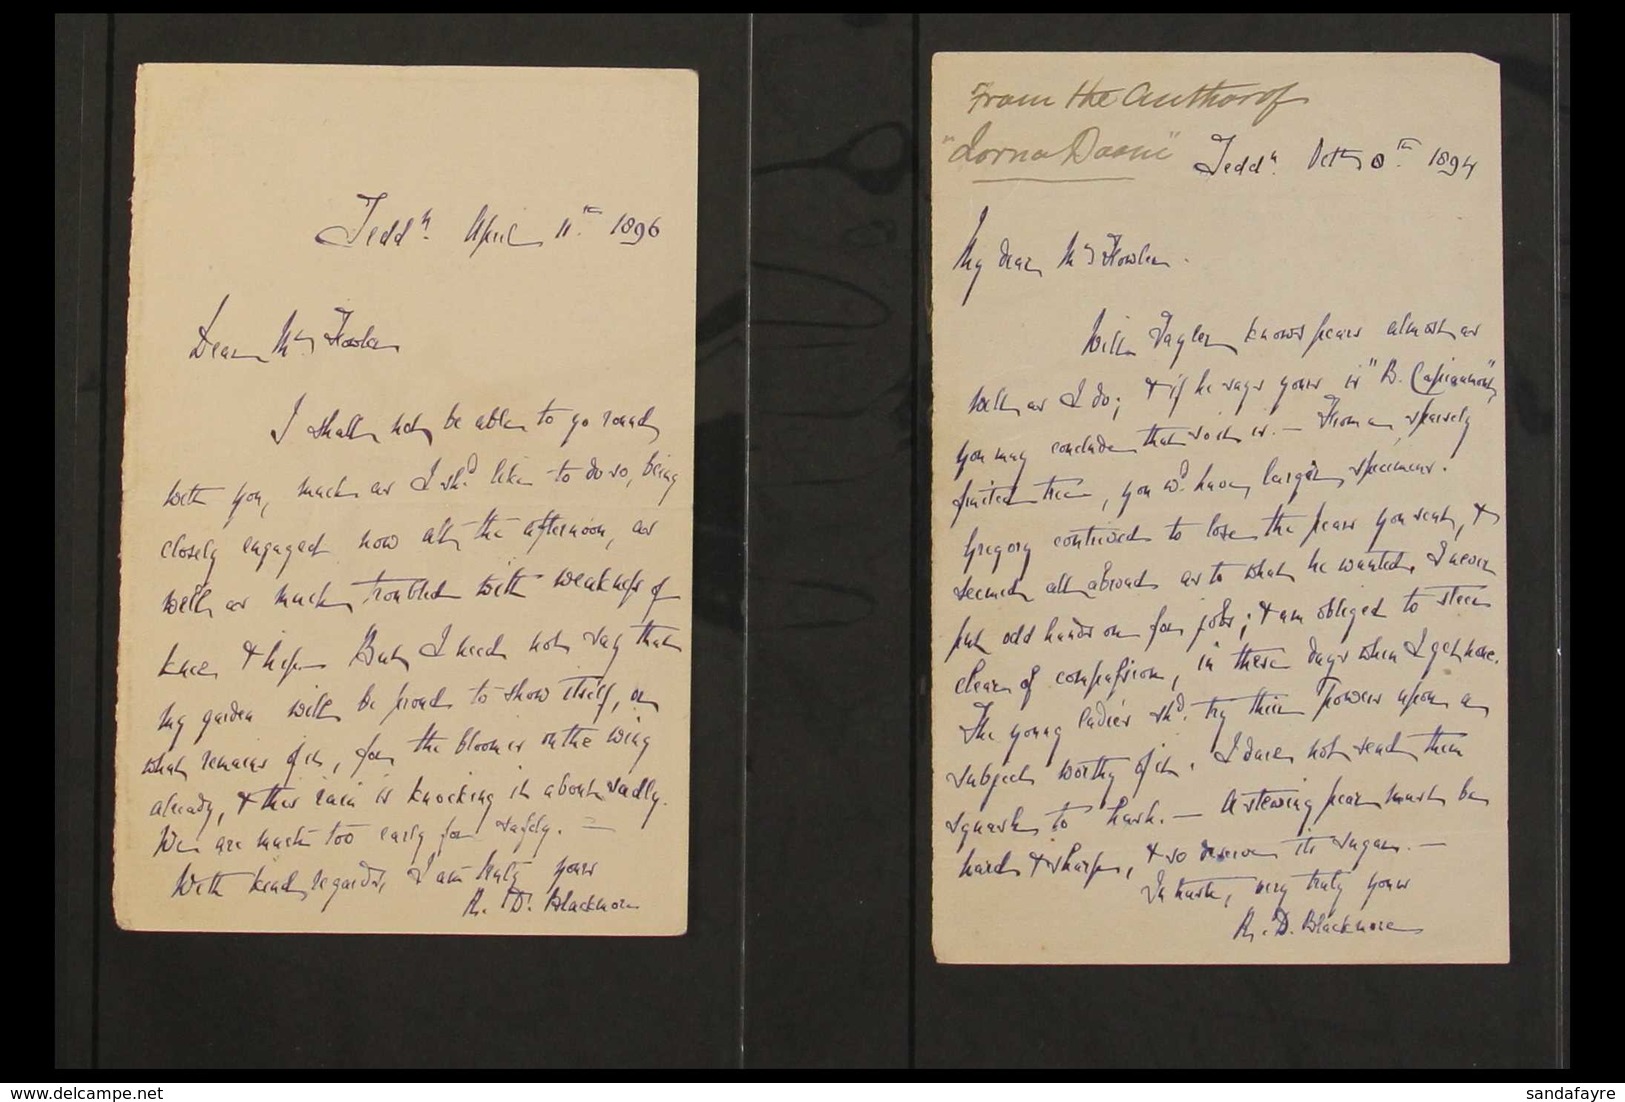 Teddn. April 11th. 1896
Dear Mrs Fowler
I shall not be able to go round
with you, much as I shd. like to do so, being
closely engaged now all the afternoon, as
well as much troubled with weakness of
knee & hip. But I need not say that
my garden will be proud to show itself, or
what remains of it, for the bloom is on the wing
already, & this rain is knocking it about sadly.
We are much too early for safety. —
With kind regards, I am truly yours
R. D. Blackmore
From the Author of
"Lorna Doone"
Teddn. Octr 8th. 1894
My dear Mrs Fowler.
Will Tayler knows pears almost as
well as I do; & if he says yours is "B. Capiaumont",
you may conclude that so it is. — From a sparsely
fruited tree, you wd. have larger specimens.
Gregory contrived to lose the pears you sent, &
seemed all abroad as to what he wanted. I never
put odd hands on for jobs; & am obliged to steer
clear of compassion, in these days when I get none.
The young ladies shd. try their powers upon a
subject worthy of it. I dare not send them
squash to hash. — A stewing pear must be
hard & sharp, & so deserve its sugar. —
In haste, very truly yours
R. D. Blackmore
www.delcampe.net
sandafayre